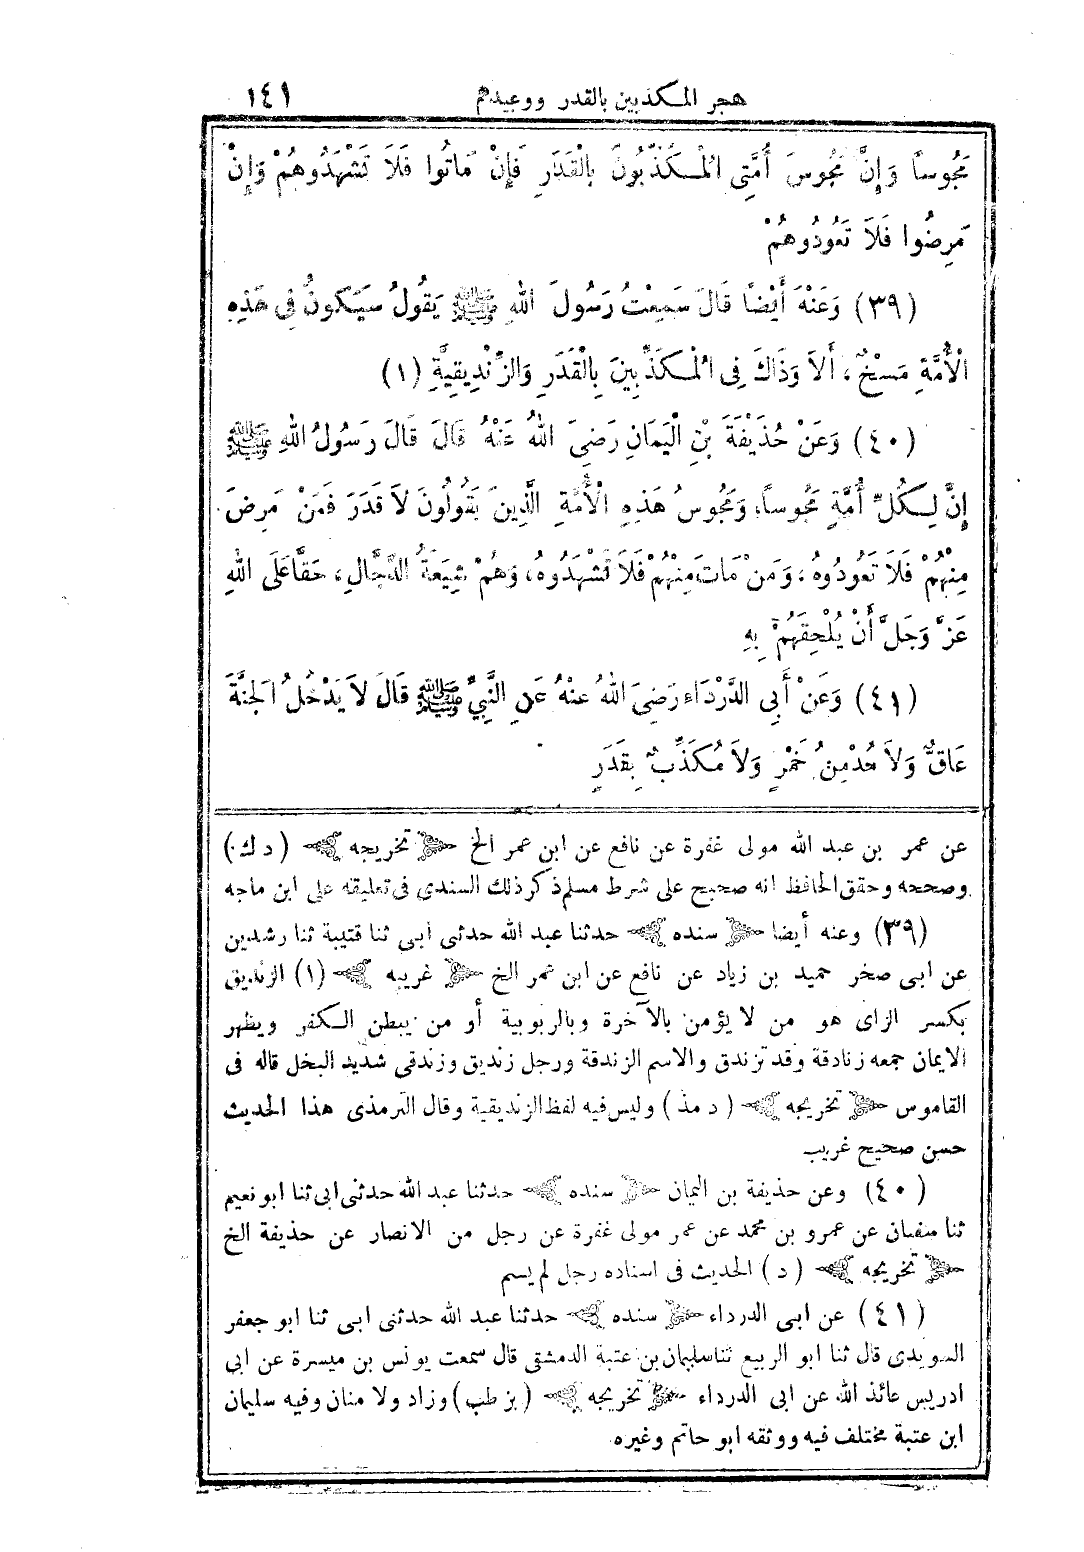 هجر المكذبين بالقدر ووعيدهم ١٤١
مَجُوسًا وَإِنَّ مَجُوسَ أُمَّتِى الْمُكَذِّبُونَ بِالْقَدَرِ فَإِنْ مَاتُوا فَلَا تَشْهَدُوهُمْ وَإِنْ
مَرِضُوا فَلَا تَعُودُوهُمْ
(٣٩) وَعَنْهُ أَيْضًا قَالَ سَمِعْتُ رَسُولَ اللهِ ﷺ يَقُولُ سَيَكُونُ فِى هَذِهِ
الْأُمَّةِ مَسْخٌ، أَلَا وَذَاكَ فِى الْمُكَذِّبِينَ بِالْقَدَرِ وَالزِّنْدِيقِيَّةِ (١)
(٤٠) وَعَنْ حُذَيْفَةَ بْنِ الْيَمَانِ رَضِىَ اللهُ عَنْهُ قَالَ قَالَ رَسُولُ اللهِ ﷺ
إِنَّ لِكُلِّ أُمَّةٍ مَجُوسًا، وَمَجُوسُ هَذِهِ الْأُمَّةِ الَّذِينَ يَقُولُونَ لَا قَدَرَ فَمَنْ مَرِضَ
مِنْهُمْ فَلَا تَعُودُوهُ، وَمَنْ مَاتَ مِنْهُمْ فَلَا تَشْهَدُوهُ، وَهُمْ شِيعَةُ الدَّجَّالِ، حَقًّا عَلَى اللهِ
عَزَّ وَجَلَّ أَنْ يُلْحِقَهُمْ بِهِ
(٤١) وَعَنْ أَبِى الدَّرْدَاءِ رَضِىَ اللهُ عَنْهُ عَنِ النَّبِىِّ ﷺ قَالَ لَا يَدْخُلُ الْجَنَّةَ
عَاقٌّ وَلَا مُدْمِنُ خَمْرٍ وَلَا مُكَذِّبٌ بِقَدَرٍ
عن عمر بن عبد الله مولى غفرة عن نافع عن ابن عمر الخ ﴿تخريجه﴾ (د ك)
وصححه وحقق الحافظ انه صحيح على شرط مسلم ذكر ذلك السندى فى تعليقه على ابن ماجه
(٣٩) وعنه أيضا ﴿سنده﴾ حدثنا عبد الله حدثى ابى ثنا قتيبة ثنا رشدين
عن ابى صخر حميد بن زياد عن نافع عن ابن عمر الخ ﴿غريبه﴾ (١) الزنديق
بكسر الزاى هو من لا يؤمن بالآخرة وبالربوبية أو من يبطن الكفر ويظهر
الايمان جمعه زنادقة وقد تزندق والاسم الزندقة ورجل زنديق وزندقى شديد البخل قاله فى
القاموس ﴿تخريجه﴾ (د مذ) وليس فيه لفظ الزنديقية وقال الترمذى هذا الحديث
حسن صحيح غريب
(٤٠) وعن حذيفة بن اليمان ﴿سنده﴾ حدثنا عبد الله حدثنى ابى ثنا ابو نعيم
ثنا سفيان عن عمرو بن محمد عن عمر مولى غفرة عن رجل من الانصار عن حذيفة الخ
﴿تخريجه﴾ (د) الحديث فى اسناده رجل لم يسم
(٤١) عن ابى الدرداء ﴿سنده﴾ حدثنا عبد الله حدثنى ابى ثنا ابو جعفر
السويدى قال ثنا ابو الربيع ثنا سليمان بن عتبة الدمشقى قال سمعت يونس بن ميسرة عن ابى
ادريس عائذ الله عن ابى الدرداء ﴿تخريجه﴾ (بز طب) وزاد ولا منان وفيه سليمان
ابن عتبة مختلف فيه ووثقه ابو حاتم وغيره.